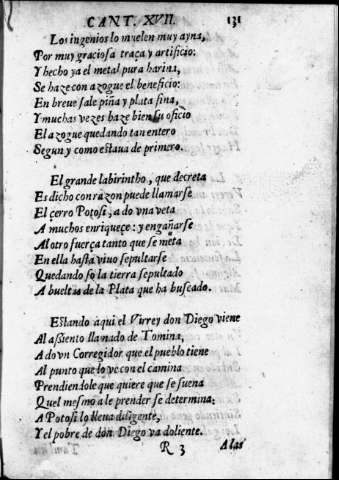 CANT. XVII. 131
Los ingenios lo muelen muy ayna,
Por muy graciosa traça y artificio:
Y hecho ya el metal pura harina,
Se haze con azogue el beneficio:
En breue sale piña y plata fina,
Y muchas vezes haze bien su oficio
El azogue quedando tan entero
Segun y como estaua de primero.
El grande labirintho, que decreta
Es dicho con razon puede llamarse
El çerro Potosi, a do vna veta
A muchos enriqueçe: y engañarse
Al otro fuerça tanto que se meta
En ella hasta viuo sepultarse
Quedando so la tierra sepultado
A bueltas de la Plata que ha buscado.
Estando aqui el Virrey don Diego viene
Al assiento llamado de Tomina,
A do vn Corregidor que el pueblo tiene
Al punto que lo ve con el camina
Prendiendole que quiere que se suena
Quel mesmo a le prender se determina:
A Potosi lo lleua diligente,
Y el pobre de don Diego va doliente.
R 3 A las